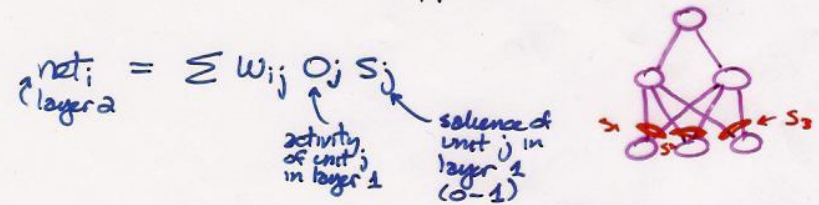 net_i = Σ w_ij O_j S_j
layer 2
activity
of unit j
in layer 1
salience of
unit j in
layer 1
(0-1)
S₁
S₃